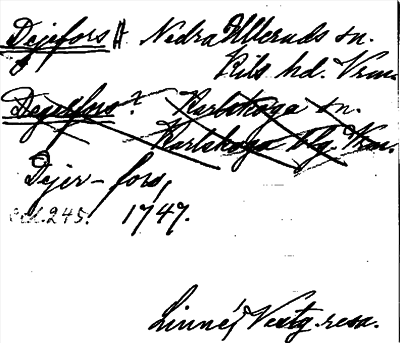 Dejefors Nedra Ulleruds sn.
Kils hd. Vrm.
Degerfors? Karlskoga sn.
Karlskoga Bg. Vrm.
Dejer-fors,
ed. 245. 1747.
Linné, Vestg. resa.